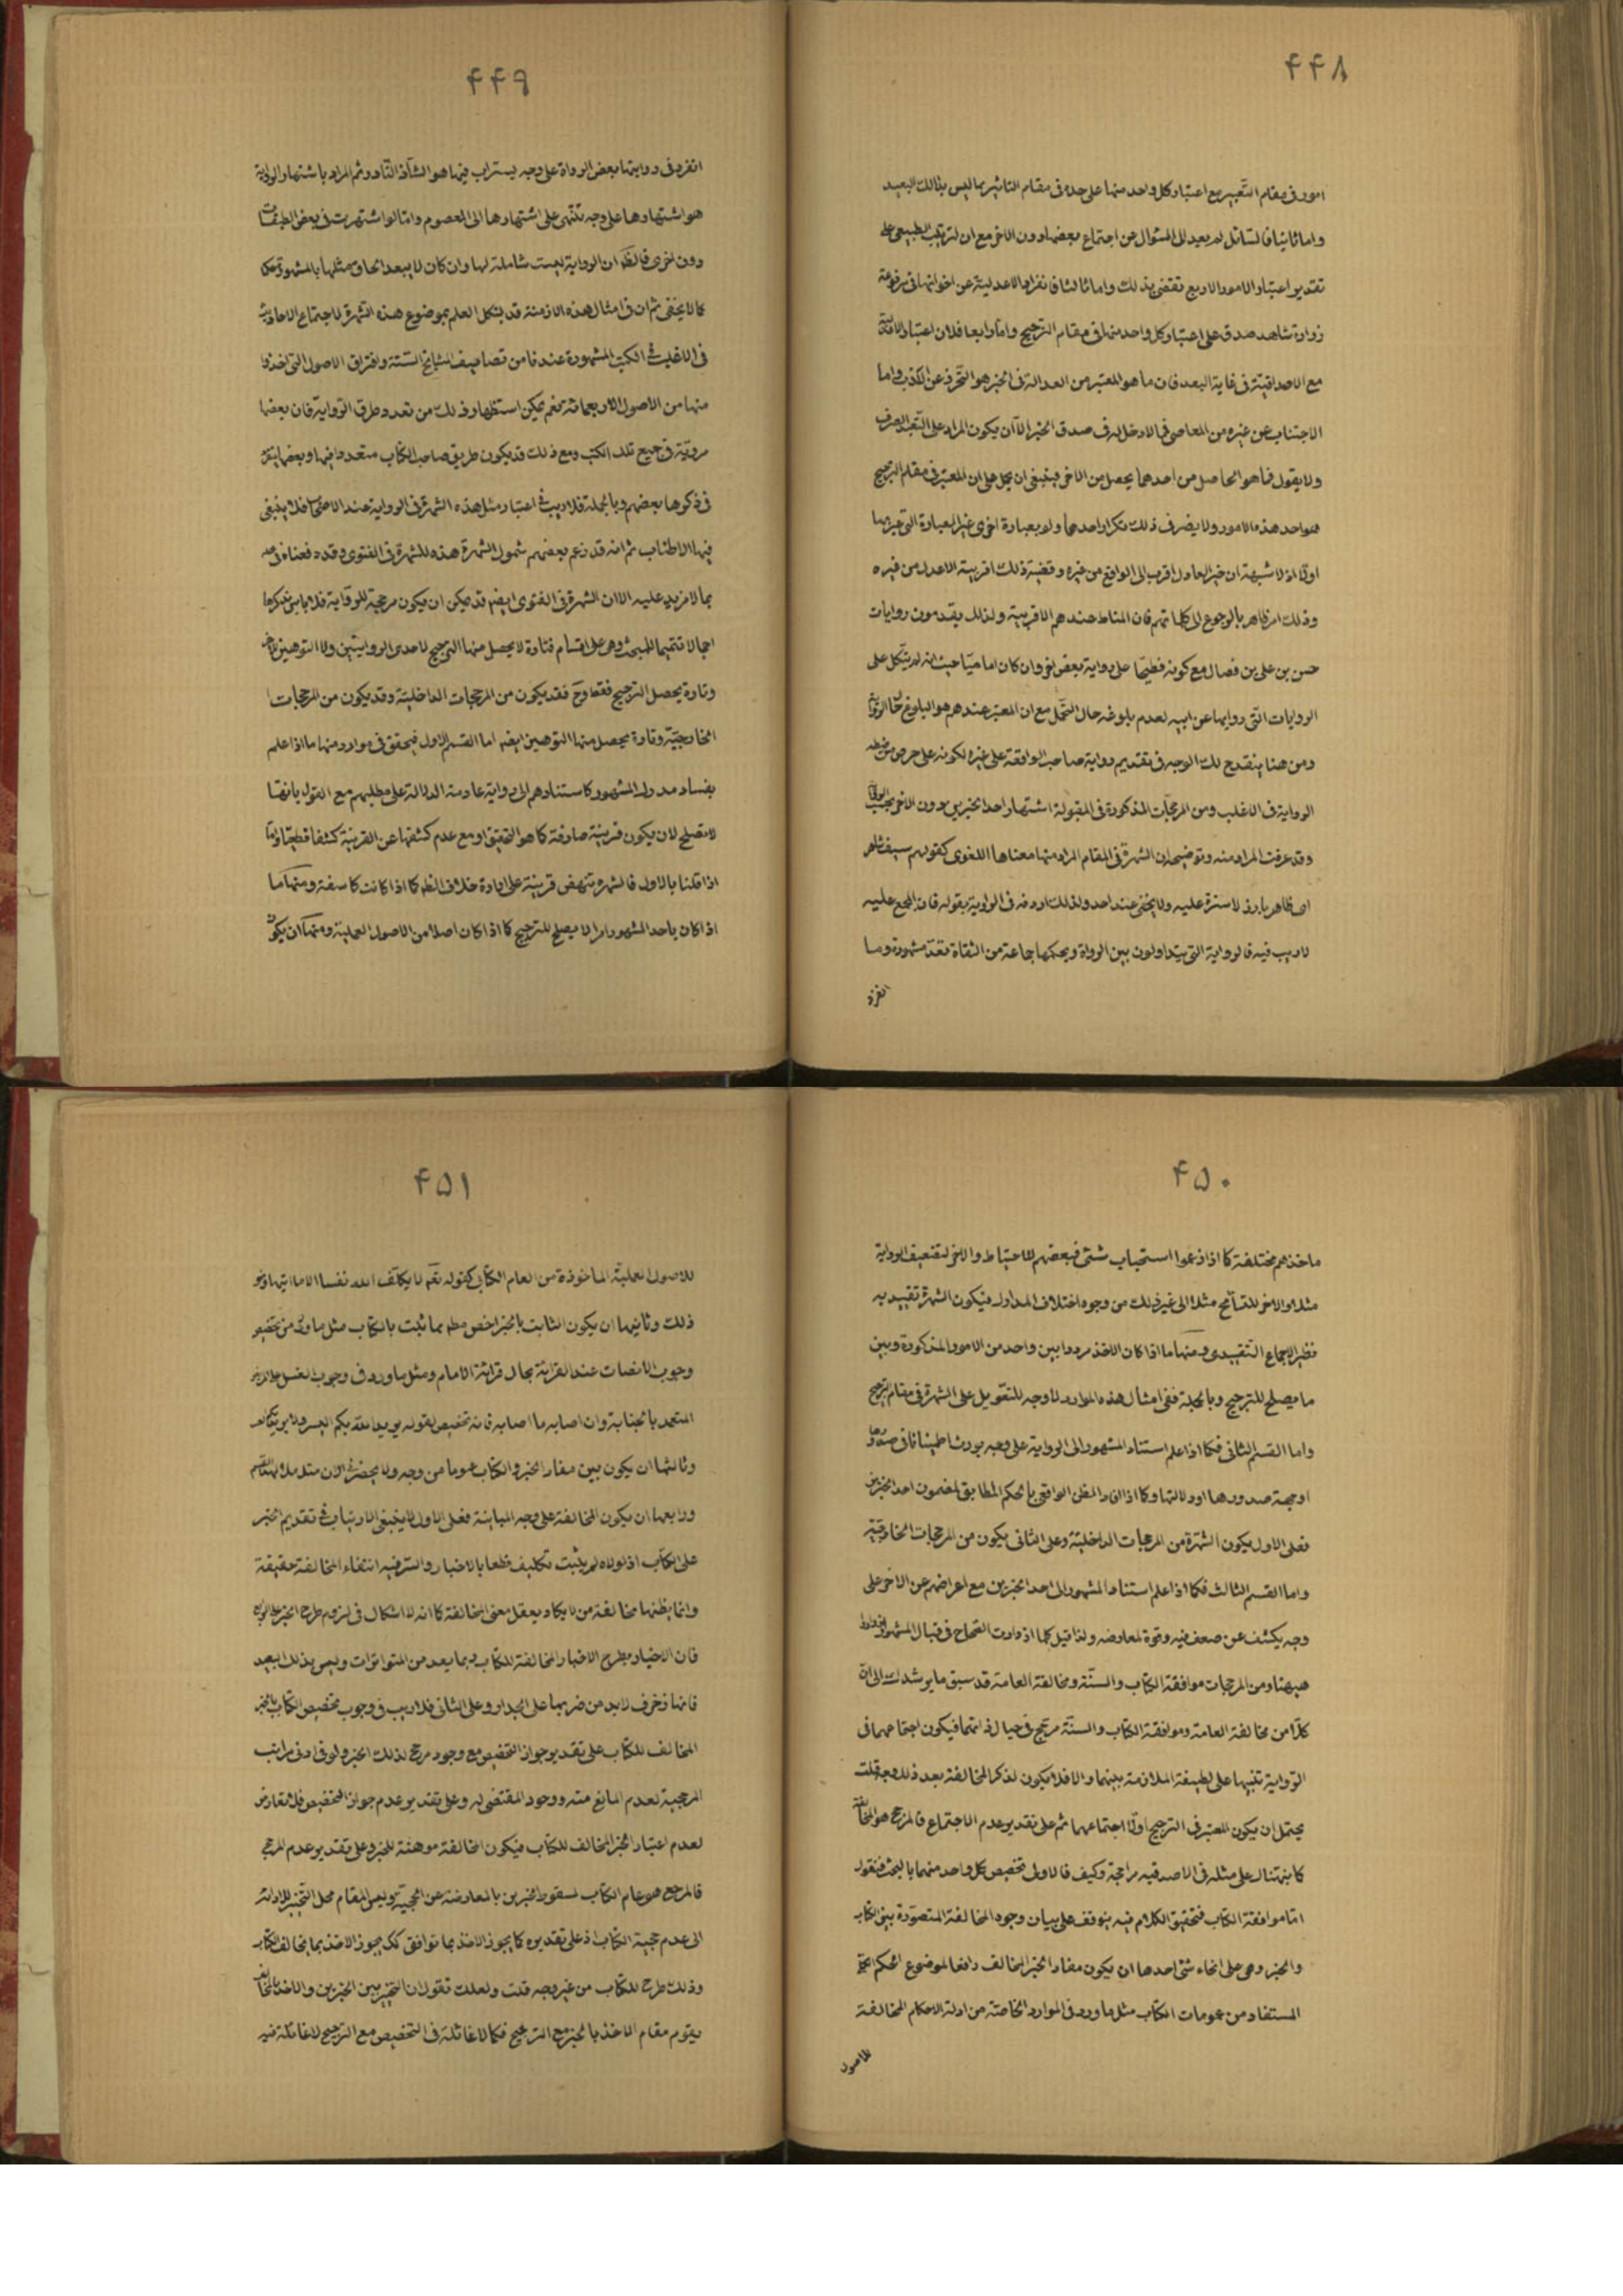 ۴۴۸
امور فى مقام التعبير مع اعتبار كل واحد منها على حدة فى مقام التاثير مما ليس بذالك البعيد
واما ثانيا فالسائل لم يعيد الى السئوال عن اجتماع بعضها دون الاخر مع ان الترتيب الطبيعى على
تقدير اعتبار الامور الاربع تقتضى بذلك واما ثالثا فانفراد الاعدلية عن اخواتها فى مرفوعة
زرارة شاهد صدق على اعتبار كل واحد منها فى مقام الترجيح واما رابعا فلان اعتبار الافقهية
مع الاصدقية فى غاية البعد فان ما هو المعتبر من العدالة فى الخبر هو التحرز عن الكذب واما
الاجتناب عن غيره من المعاصى فمالا دخل له فى صدق الخبر الا ان يكون المراد على التعبد الصرف
ولا يقول فما هو الحاصل من احدهما يحصل من الاخر فينبغى ان يحمل على ان المعتبر فى مقام الترجيح
هو احد هذه الامور ولا يضر فى ذلك تكرار احدها ولو بعبارة اخرى غير العبارة التى عبر بها
اولا اذ لا شبهة ان خبر العادل اقرب الى الواقع من غيره وقضية ذلك اقربية الاعدل من غيره
وذلك امر ظاهر بالرجوع الى كلماتهم فان المناط عندهم الاقربية ولذلك يقدمون روايات
حسن بن على بن فضال مع كونه فطحيا على رواية بعض اخر وان كان اماميا حيث انه لم يتكل على
الروايات التى رواها عن ابيه لعدم بلوغه حال التحمل مع ان المعتبر عندهم هو البلوغ حال الرواية
ومن هنا ينقدح لك الوجه فى تقديم رواية صاحب الواقعة على غيره لكونه على حرص من ضبط
الرواية فى الاغلب ومن المرجحات المذكورة فى المقبولة اشتهار احد الخبرين دون الاخر بحسب الرواية
وقد عرفت المراد منه وتوضيحه ان الشهرة فى المقام المراد منها معناها اللغوى كقولهم سيف شاهر
اى ظاهر بارز لا سترة عليه ولا يخفى عند احد ولذلك اردفه فى الرواية بقوله فان المجمع عليه
لا ريب فيه فالرواية التى يتداولون بين الرواة ويحكمها جماعة من الثقاة تعد مشهورة وما
انفرد
۴۴۹
انفرد فى روايتها بعض الرواة على وجه يستراب فيها هو الشاذ النادر ثم المراد باشتهار الرواية
هو اشتهارها على وجه تنتهى على اشتهارها الى المعصوم واما لو اشتهرت فى بعض الطبقات
دون اخرى فالظ ان الرواية ليست شاملة لها وان كان لا يبعد الحاق مثلها بالمشهورة حكما
كما لا يخفى ثم ان فى امثال هذه الازمنة قد يشكل العلم بموضوع هذه الشهرة لاجتماع الاحاديث
فى الاغلب فى الكتب المشهورة عندنا من تصانيف المشايخ الستة وافتراق الاصول التى اخذوا
منها من الاصول الاربعمائة نعم يمكن استظهار ذلك من تعدد طرق الرواية فان بعضها
مروية فى جميع تلك الكتب ومع ذلك قد يكون طريق صاحب الكتاب متعددا فيها وبعضها ينفرد
فى ذكرها بعضهم وبالجملة فلا ريب فى اعتبار مثل هذه الشهرة فى الرواية عند الاصحاب فلا ينبغى
فيها الاطناب ثم انه قد زعم بعضهم شمول الشهرة هذه للشهرة فى الفتوى وقد دفعناه فى محله
بما لا مزيد عليه الا ان الشهرة فى الفتوى ايضم قد يمكن ان يكون مرجحة للرواية فلا باس بذكرها
اجمالا تتميما للمبحث وهى على اقسام فتارة لا يحصل منها الترجيح لاحدى الروايتين ولا التوهين للاخر
وتارة يحصل الترجيح فقط وح فقد يكون من المرجحات الداخلية وقد يكون من المرجحات
الخارجية وتارة يحصل منها التوهين ايضم اما القسم الاول فيتحقق فى موارد منها ما اذا علم
بفساد مدرك المشهور كاستنادهم الى رواية عادمة الدلالة على مطلبهم مع القول بانها
لا تصلح لان يكون قرينة صارفة كما هو التحقيق او مع عدم كشفها عن القرينة كشفا قطعيا واما
اذا قلنا بالاول فالشهرة تنهض قرينة على ارادة خلاف الظم كما اذا كانت كاسفة ومنها ما
اذا كان ياحد المشهور امرا لا يصلح للترجيح كما اذا كان اصلا من الاصول العملية ومنها ان يكون
۴۵۰
ماخذهم مختلفة كما اذا زعموا استحباب شئى فبعضهم للاحتياط والاخر لتضعيف الرواية
مثلا والاخر للتسامح مثلا الى غير ذلك من وجوه اختلاف المدارك فيكون الشهرة تقييديه
نظير الاجماع التقييدى ومنها ما اذا كان الاخذ مرددا بين واحد من الامور المذكورة وبين
ما يصلح للترجيح وبالجملة ففى امثال هذه الموارد لا وجه للتعويل على الشهرة فى مقام الترجيح
واما القسم الثانى فكما اذا علم استناد المشهور الى الرواية على وجه يورث اطمينانا فى صدورها
او جهة صدورها او دلالتها وكما اذا افاد الظن الواقعى بالحكم المطابق لمضمون احد الخبرين
فعلى الاول يكون الشهرة من المرجحات الداخلية وعلى الثانى يكون من المرجحات الخارجية
واما القسم الثالث فكما اذا علم استناد المشهور الى احد الخبرين مع اعراضهم عن الاخر على
وجه يكشف عن ضعف فيه وقوة لمعارضه ولذا قيل كلما ازدادت الصحاح فى قبال المشهور ازداد
هيهنا ومن المرجحات موافقة الكتاب والسنة ومخالفة العامة قد سبق ما يرشدك الى ان
كلا من مخالفة العامة وموافقة الكتاب والسنة مرجح فى حيال ذاتها فيكون اجتماعهما فى
الرواية تنبيها على لطيفة الملازمة بينهما والا فلا يكون لذكر المخالفة بعد ذلك وجه قلت
يحتمل ان يكون المعتبر فى الترجيح اولا اجتماعهما ثم على تقدير عدم الاجتماع فالمرجح هو المخالفة
كما بنتنال على مثله فى الاصدقيه مراجحة وكيف فالاولى تخصيص كل واحد منهما بالبحث فنقول
اما موافقة الكتاب فتحقيق الكلام فيه يتوقف على بيان وجوه المخالفة المتصورة بين الكتاب
والخبر وهى على انحاء شتى احدها ان يكون مفاد الخبر المخالف رافعا لموضوع الحكم
المستفاد من عمومات الكتاب مثل ما ورد فى الموارد الخاصة من ادلة الاحكام المخالفة
للاصول
۴۵۱
للاصول العملية الماخوذة من العام الكتابى كقوله تعم لا يكلف الله نفسا الا ما اتيها ونحو
ذلك وثانيها ان يكون الثابت بالخبر اخص مطم بما ثبت بالكتاب مثل ما ورد من تخصيص
وجوب الانصات عند القرائة بحال قرائة الامام ومثل ما ورد فى وجوب الغسل على المريض
المتعمد بالجنابة وان اصابه ما اصابه فانه تخصيص لقوله يريد الله بكم اليسر ولا يريد بكم العسر
وثالثها ان يكون بين مفاد الخبر والكتاب عموما من وجه ولا يحضرنى الان مثله
ورابعها ان يكون المخالفة على وجه المباينة فعلى الاول لا ينبغى الارتياب فى تقديم الخبر
على الكتاب اذ لولاه لم يثبت تكليف قطعا بالاخبار والسر فيه انتفاء المخالفة حقيقة
وانما يظنها مخالفة من لا يكاد يعقل معنى المخالفة كما انه لا اشكال فى لزوم طرح الخبر على الرابع
فان الاخبار بطرح الاخبار المخالفة للكتاب ربما يعد من المتواترات وليس بذلك البعيد
فانها زخرف لابد من ضربها على الجدار وعلى الثانى فلا ريب فى وجوب تخصيص الكتاب بالخبر
المخالف للكتاب على تقدير جواز التخصيص مع وجود مرجح لذلك الخبر ولو فى ادنى مراتب
المرجحية لعدم المانع منه ووجود المقتضى له وعلى تقدير عدم جواز التخصيص فلا تعارض
لعدم اعتبار الخبر المخالف للكتاب فيكون المخالفة موهنة للخبر وعلى تقدير عدم المرجح
فالمرجع هو عام الكتاب لسقوط الخبرين بالمعارضة عن الحجية وليس المقام محل التخيير
الى عدم حجية الكتاب اذ على تقديره كما يجوز الاخذ بما توافق كك يجوز الاخذ بما يخالف الكتاب
وذلك طرح للكتاب من غير وجه قلت ولعلك تقول ان التخيير بين الخبرين والاخذ بالمخالف
يقوم مقام الاخذ بالخبر مع الترجيح فكما لا غائلة فى التخصيص مع الترجيح لا غائلة فيه